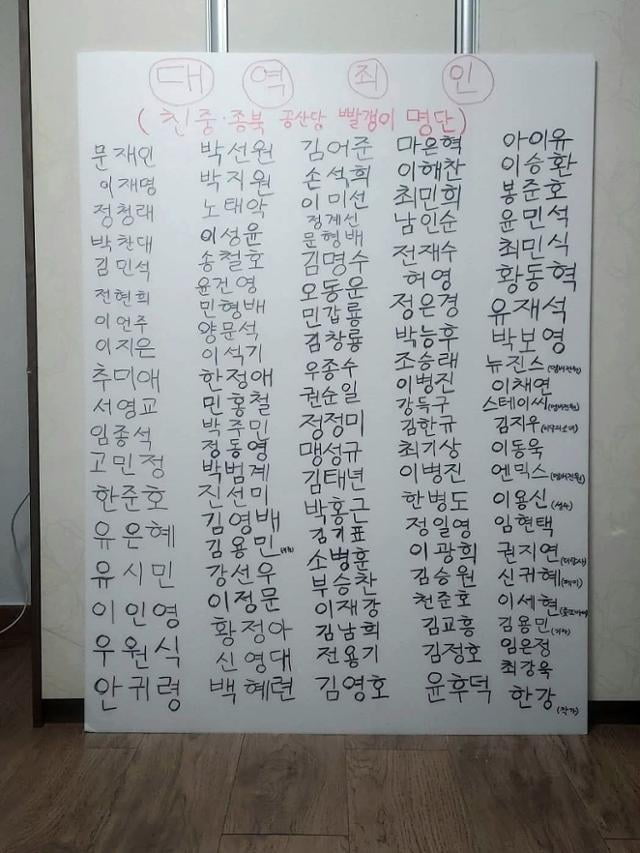 대 역 죄 인
( 친중·종북 공산당 빨갱이 명단 )
문재인
이재명
정청래
박찬대
김민석
전현희
이언주
이지은
추미애
서영교
임종석
고민정
한준호
유은혜
유시민
이인영
우원식
안귀령
박선원
박지원
노태악
이성윤
송철호
윤건영
민형배
양문석
이석기
한정애
민홍철
박주민
정동영
박범계
진선미
김영배
김용민
강선우
이정문
황정아
신영대
백혜련
김어준
손석희
이미선
정계선
문형배
김명수
오동운
민갑룡
김창룡
우종수
권순일
정정미
맹성규
김태년
박홍근
김기표
소병훈
부승찬
이재강
김남희
전용기
김영호
마은혁
이해찬
최민희
남인순
전재수
허영
정은경
박능후
조승래
이병진
강득구
김한규
최기상
이병진
한병도
정일영
이광희
김승원
천준호
김교흥
김정호
윤후덕
아이유
이승환
봉준호
윤민석
최민식
황동혁
유재석
박보영
뉴진스(멤버전원)
이채연
스테이씨(멤버전원)
김지우
이동욱
엔믹스(멤버전원)
이용신(성우)
임현택
권지연
신귀혜
이세현
김용민(기자)
임은정
최강욱
한강(작가)